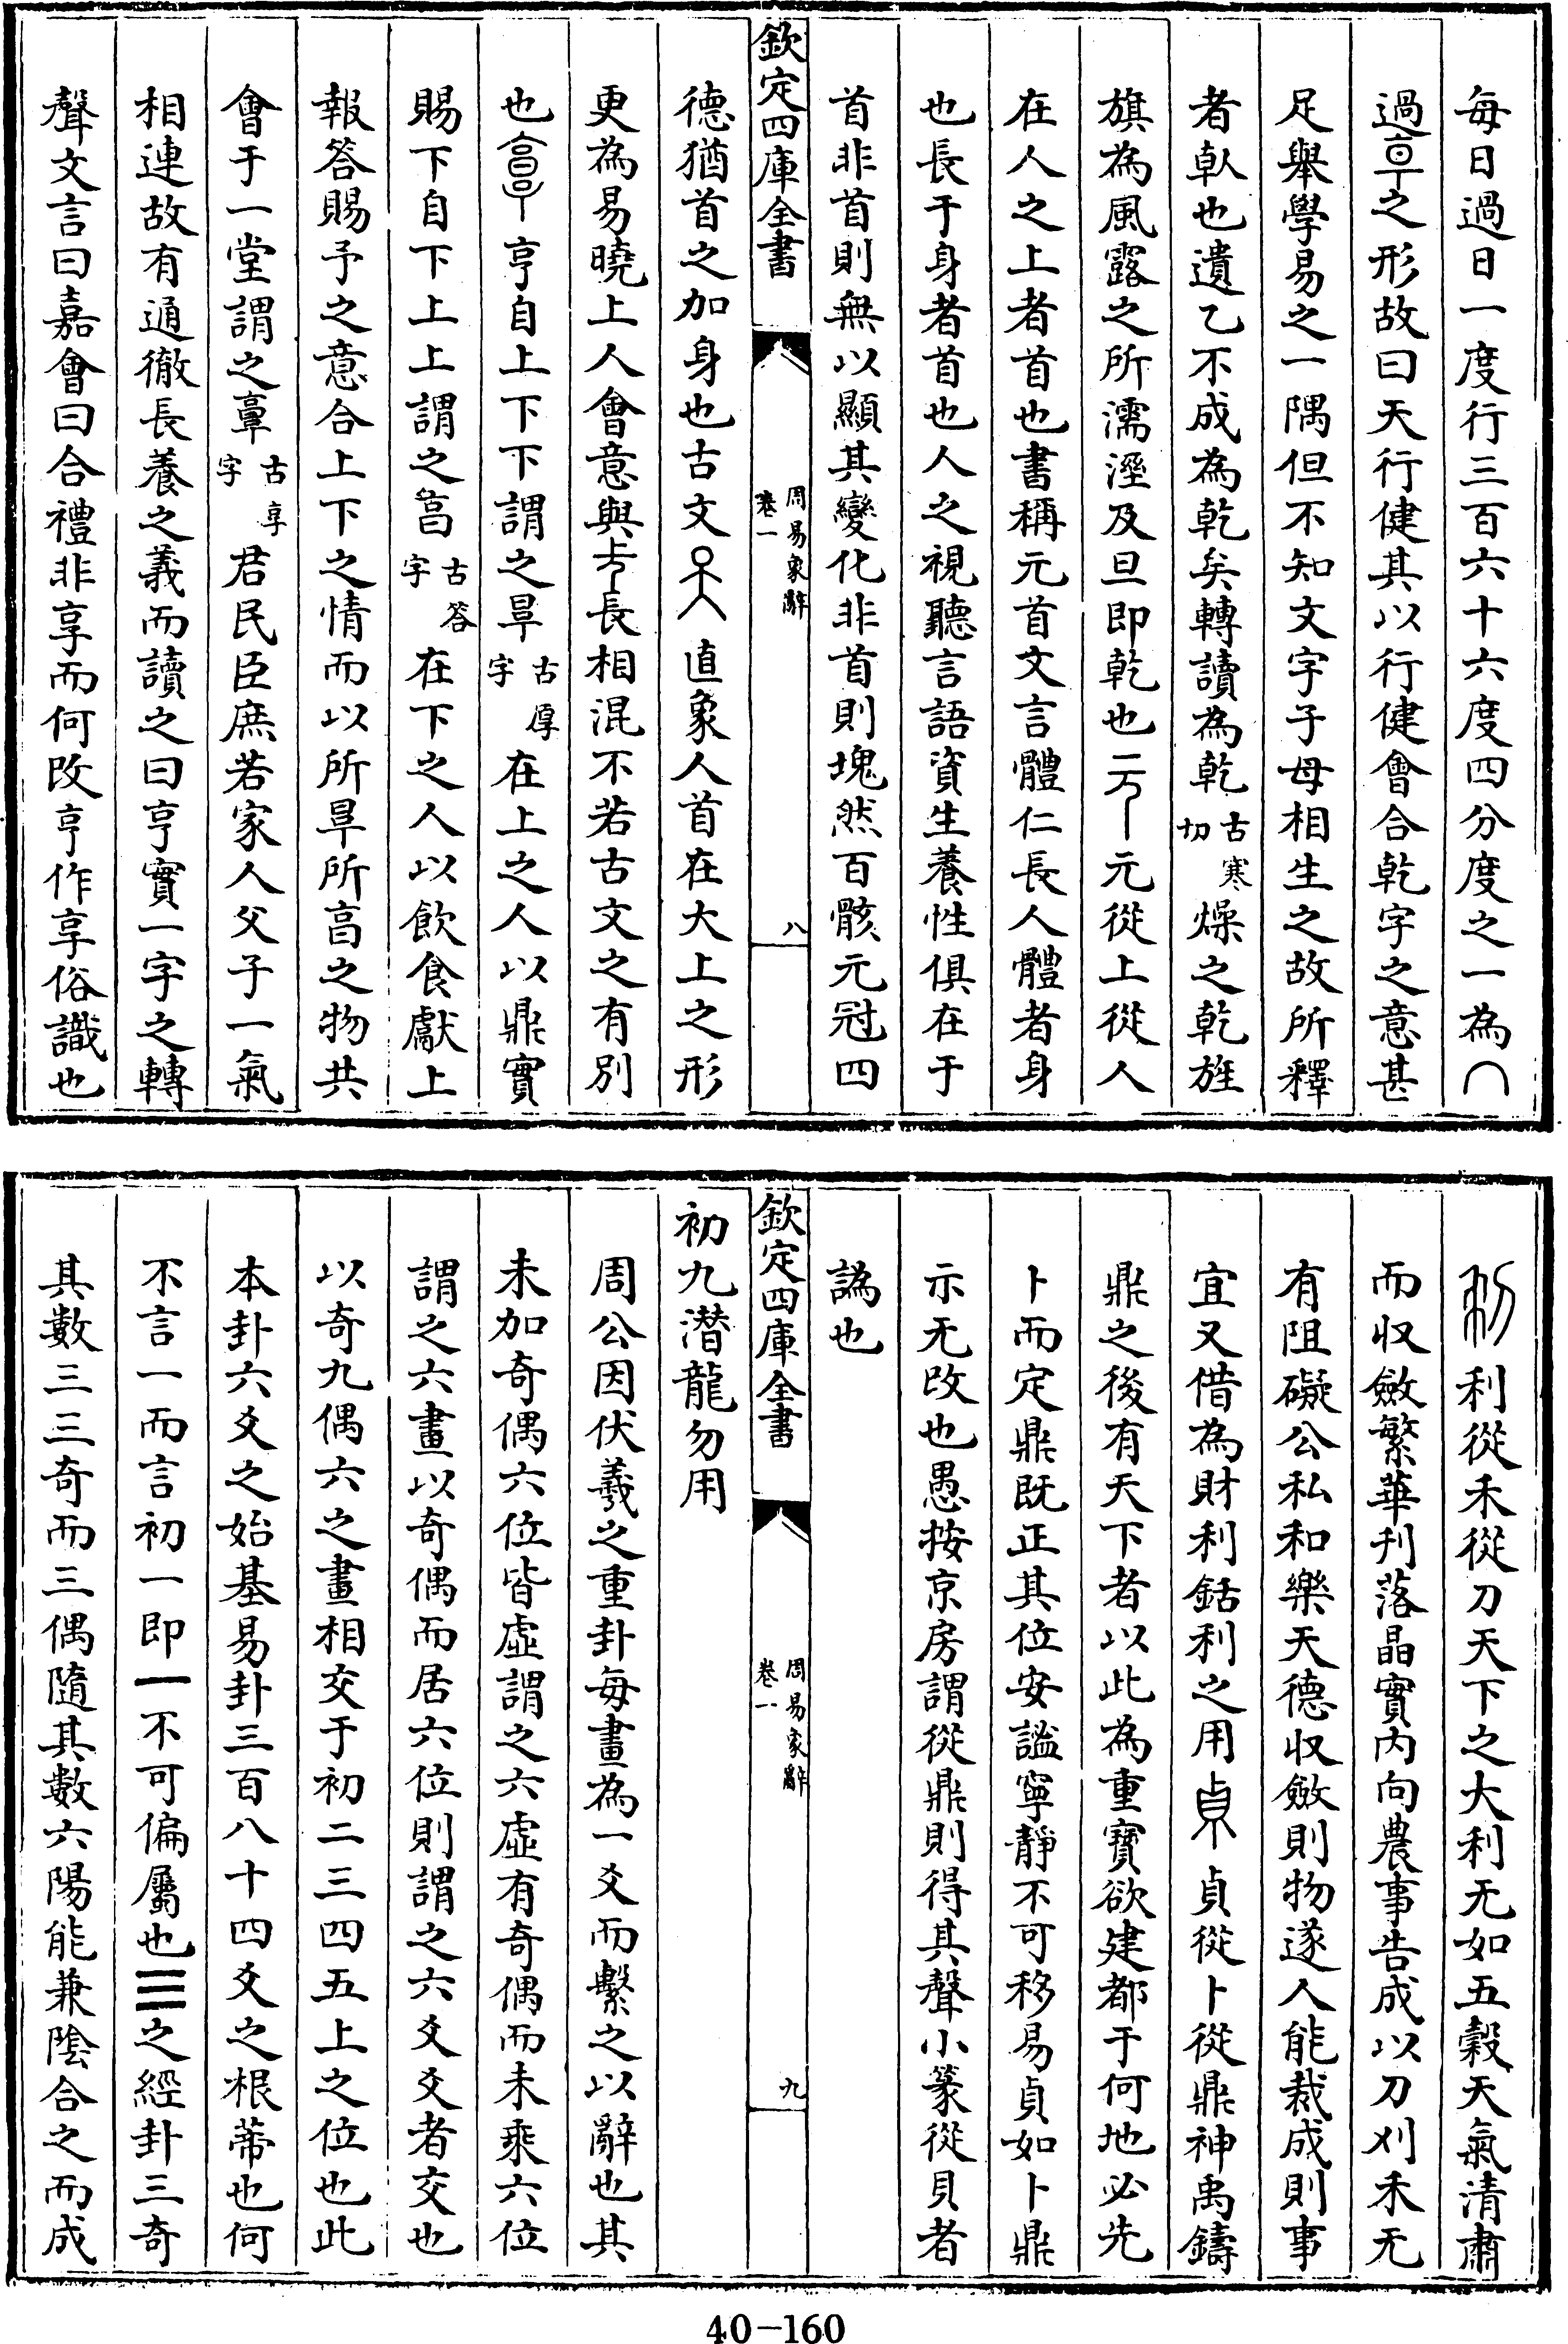 每日過日一度行三百六十六度四分度之一為⋂
過𠅏之形故曰天行健其以行健會合乾字之意甚
足舉學易之一隅但不知文字子母相生之故所釋
者倝也遺乙不成為乾矣轉讀為乾古寒切燥之乾旌
旗為風露之所濡溼及旦即乾也元從上從人
在人之上者首也書稱元首文言體仁長人體者身
也長于身者首也人之視聽言語資生養性俱在于
首非首則無以顯其變化非首則塊然百骸元冠四
欽定四庫全書
周易象辭
卷一
八
德猶首之加身也古文直象人首在大上之形
更為易曉上人會意與長相混不若古文之有別
也亨自上下下謂之㫗古厚字在上之人以鼎實
賜下自下上上謂之畣古答字在下之人以飲食獻上
報答賜予之意合上下之情而以所㫗所畣之物共
會于一堂謂之𦎫古享字君民臣庶若家人父子一氣
相連故有通徹長養之義而讀之曰亨實一字之轉
聲文言曰嘉會曰合禮非享而何改亨作享俗識也
利從禾從刀天下之大利无如五穀天氣清肅
而收斂繁華刋落晶實內向農事告成以刀刈禾无
有阻礙公私和樂天德收斂則物遂人能裁成則事
宜又借為財利銛利之用貞從卜從鼎神禹鑄
鼎之後有天下者以此為重寶欲建都于何地必先
卜而定鼎既正其位安謐寧靜不可移易貞如卜鼎
示无改也愚按京房謂從鼎則得其聲小篆從貝者
譌也
欽定四庫全書
周易象辭
卷一
九
初九潛龍勿用
周公因伏羲之重卦每畫為一爻而繫之以辭也其
未加奇偶六位皆虛謂之六虛有奇偶而未乘六位
謂之六畫以奇偶而居六位則謂之六爻爻者交也
以奇九偶六之畫相交于初二三四五上之位也此
本卦六爻之始基易卦三百八十四爻之根蒂也何
不言一而言初一即⚊不可偏屬也☰之經卦三奇
其數三三奇而三偶隨其數六陽能兼陰合之而成
40-160